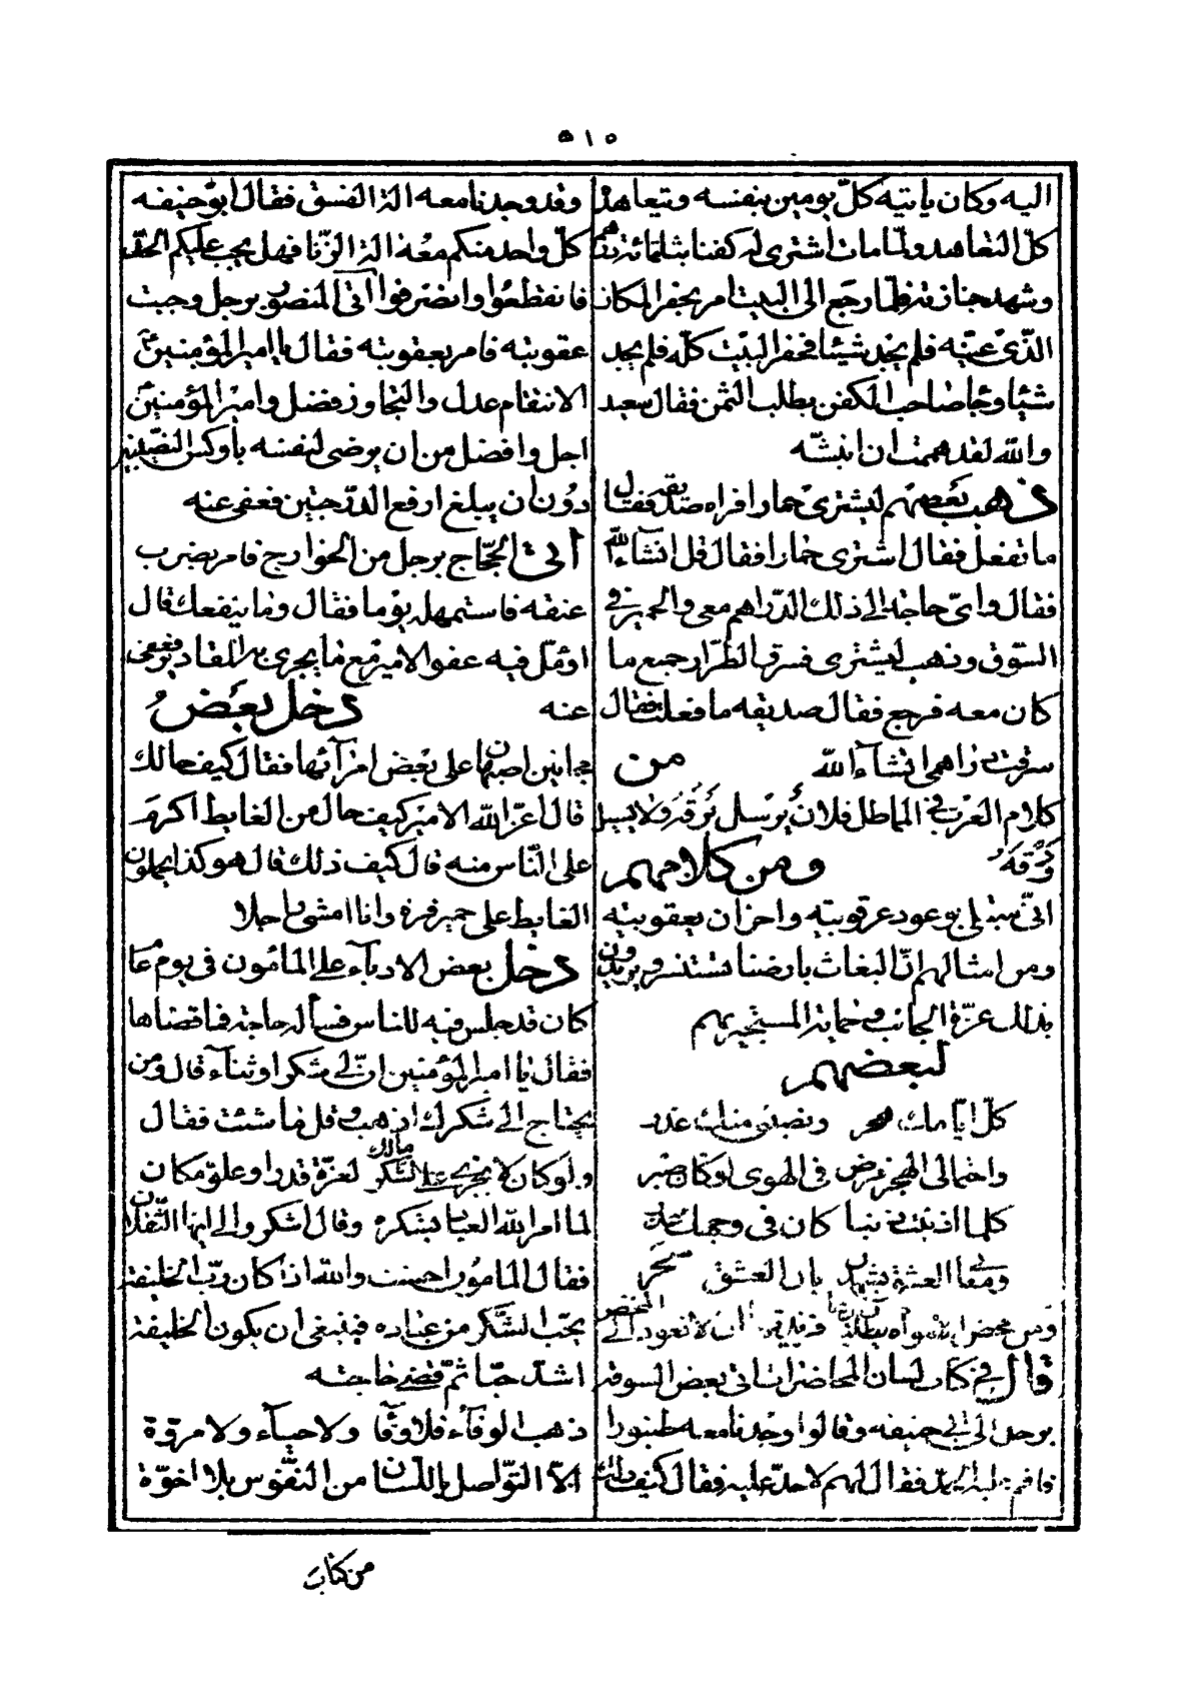 ٥١٥
اليه وكان ياتيه كلّ يومين بنفسه ويتعاهده
كلّ التعاهد ولمّا مات اشترى له كفنا بثلثمائة درهم
وشهد جنازته فلمّا رجع الى البيت امر بحفر المكان
الذّى عيّنه فلم يجد شيئا فحفر البيت كلّه فلم يجد
شيئا وجاء صاحب الكفن يطلب الثمن فقال سعيد
والله لقد هممت ان انبشه
ذهب بعضهم ليشترى حمارا فراه صديقه فقال
ما تفعل فقال اشترى حمارا فقال قل انشاء الله
فقال واىّ حاجة الى ذلك الدّراهم معى والحمير فى
السّوق وذهب ليشترى فسرق الطرّار جميع ما
كان معه فرجع فقال صديقه ما فعلت فقال
سرقت دراهمى انشاء الله من
كلام العرب فى المماطل فلان يرسل برقه ولا يسيل
ودقه ومن كلامهم
انّى مبتلى بوعود عرقوبيّه واحزان يعقوبيّه
ومن امثالهم انّ البغاث بارضنا تستنسر ويريدون
بذلك عزّة الجانب وحماية المستجير بهم
لبعضهم
كلّ ايّامك هجر ونصيبى منك غدر
واحتمالى الهجر فرض فى الهوى لو كان صبر
كلما اذنبت ذنبا كان فى وجهك عذر
ومعا العشق بان العشق سحر
قال فى كتاب لسان المحاضرات اتى بعض السوقة
برجل الى ابى حنيفه وقالوا وجدنا معه طنبورا
فقال لهم لا حدّ عليه فقال كيف ذلك
وقد وجدنا معه الة الفسق فقال ابو حنيفه
كلّ واحد منكم معه الة الزّنا فهل يجب عليكم الحدّ
فانقطعوا وانصرفوا اتى المنصور برجل وجبت
عقوبته فامر بعقوبته فقال يا امير المؤمنين
الانتقام عدل والتجاوز فضل وامير المؤمنين
اجل وافضل من ان يرضى لنفسه باوكس النصيبين
دون ان يبلغ ارفع الدّرجتين فعفى عنه
اتى الحجّاج برجل من الخوارج فامر بضرب
عنقه فاستمهله يوما فقال وما ينفعك قال
اؤمّل فيه عفو الامير مع ما يجرى به المقادير فعفى
عنه دخل بعض
مجانين اصبهان على بعض امرآئها فقال كيف حالك
قال اعزّ الله الامير كيف حال من الغايط اكرم
على النّاس منه قال كيف ذلك قال هو كذا يحملون
الغايط على حمير فره وانا امشى راجلا
دخل بعض الادبآء على المامون فى يوم ما
كان قد جلس فيه للناس فساله حاجة فما قضاها
فقال يا امير المؤمنين انّ لى شكرا وثنآء قال ومن
يحتاج الى شكرك اذهب وقل ما شئت فقال
ولو كان لا يحتاج الى الشكر مالك لعزّة قدر او علوّ مكان
لما امر الله العباد بشكره وقال اشكروا لى ايها الثقلان
فقال المامون احسنت والله اذا كان ربّ الخليفة
يحبّ الشّكر من عباده فينبغى ان يكون الخليفة
اشدّ حبّا ثمّ قضى حاجته
ذهب الوفآء فلا وفآء ولا حيآء ولا مروّة
الّا التّواصل باللّسان من النّفوس بلا اخوّة
من كتاب